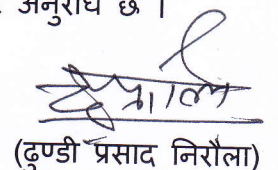 अनुरोध छ ।
(ढुण्डी प्रसाद निरौला)